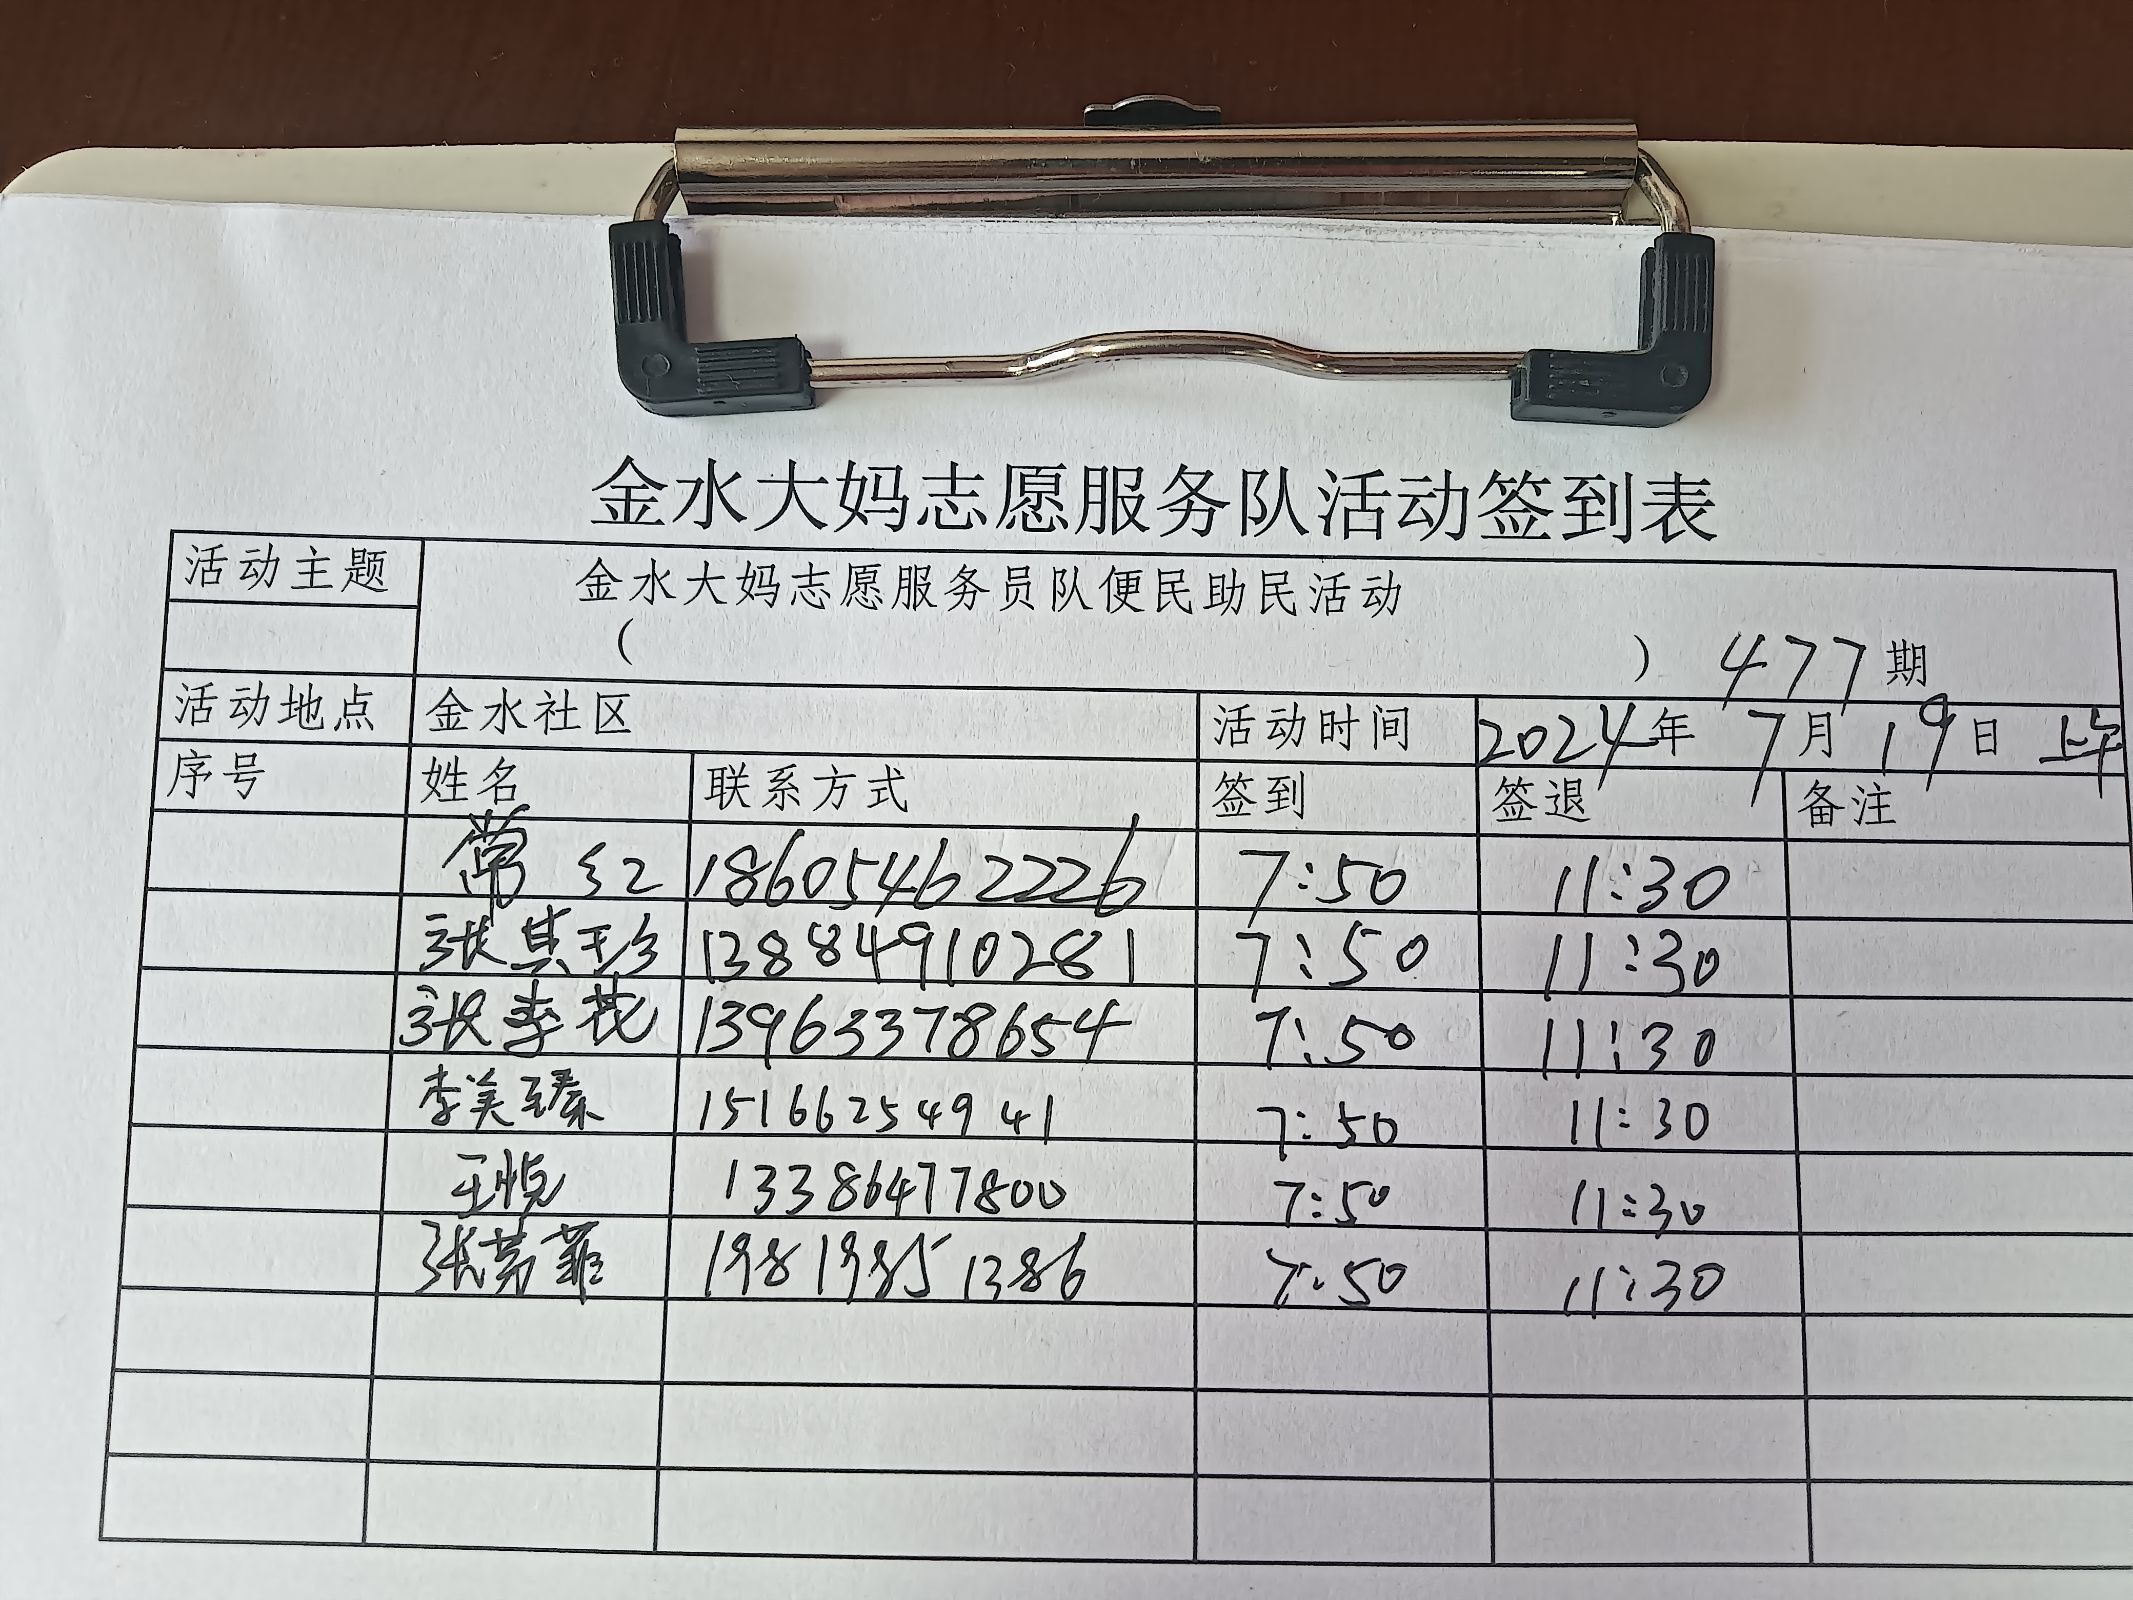 金水大妈志愿服务队活动签到表
活动主题 金水大妈志愿服务员队便民助民活动
( ) 477期
活动地点 金水社区 活动时间 2024年7月19日 上午
序号 姓名 联系方式 签到 签退 备注
常红 18605462226 7:50 11:30
张其珍 13884910281 7:50 11:30
张李花 13963378654 7:50 11:30
李美臻 15166254941 7:50 11:30
王悦 13386477800 7:50 11:30
张芳菲 19819851386 7:50 11:30